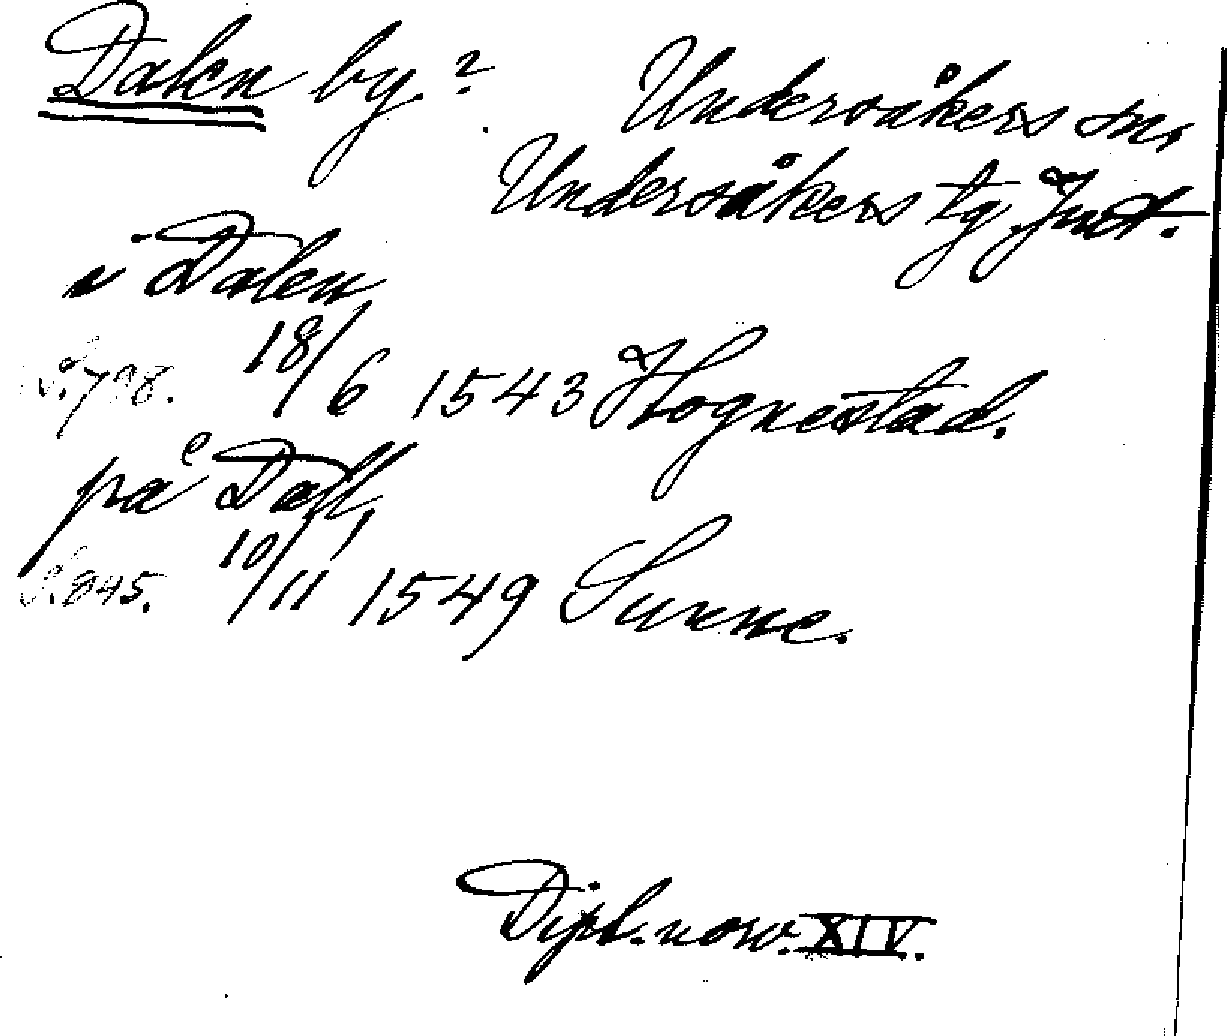 Dalen by.? Undersåkers sn,
Undersåkers tg. Jmt.
i Dalen,
S. 798. 18/6 1543 Hognestad.
på Dall,
S. 845. 10/11 1549 Sunne.
Dipl. norv. XIV.